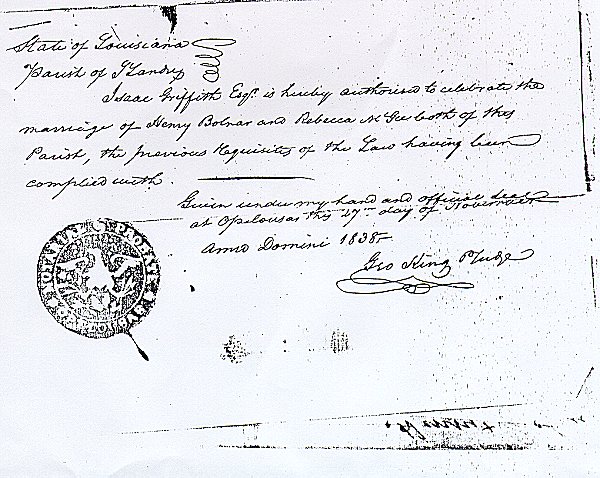 State of Louisiana
Parish of St Landry
Isaac Griffith Esqr. is hereby authorised to celebrate the
marriage of Henry Bolnar and Rebecca McGee both of this
Parish, the previous requisites of the Law having been
complied with.
Given under my hand and official seal
at Opelousas this 27th day of November
Anno Domini 1838
Geo King P Judge